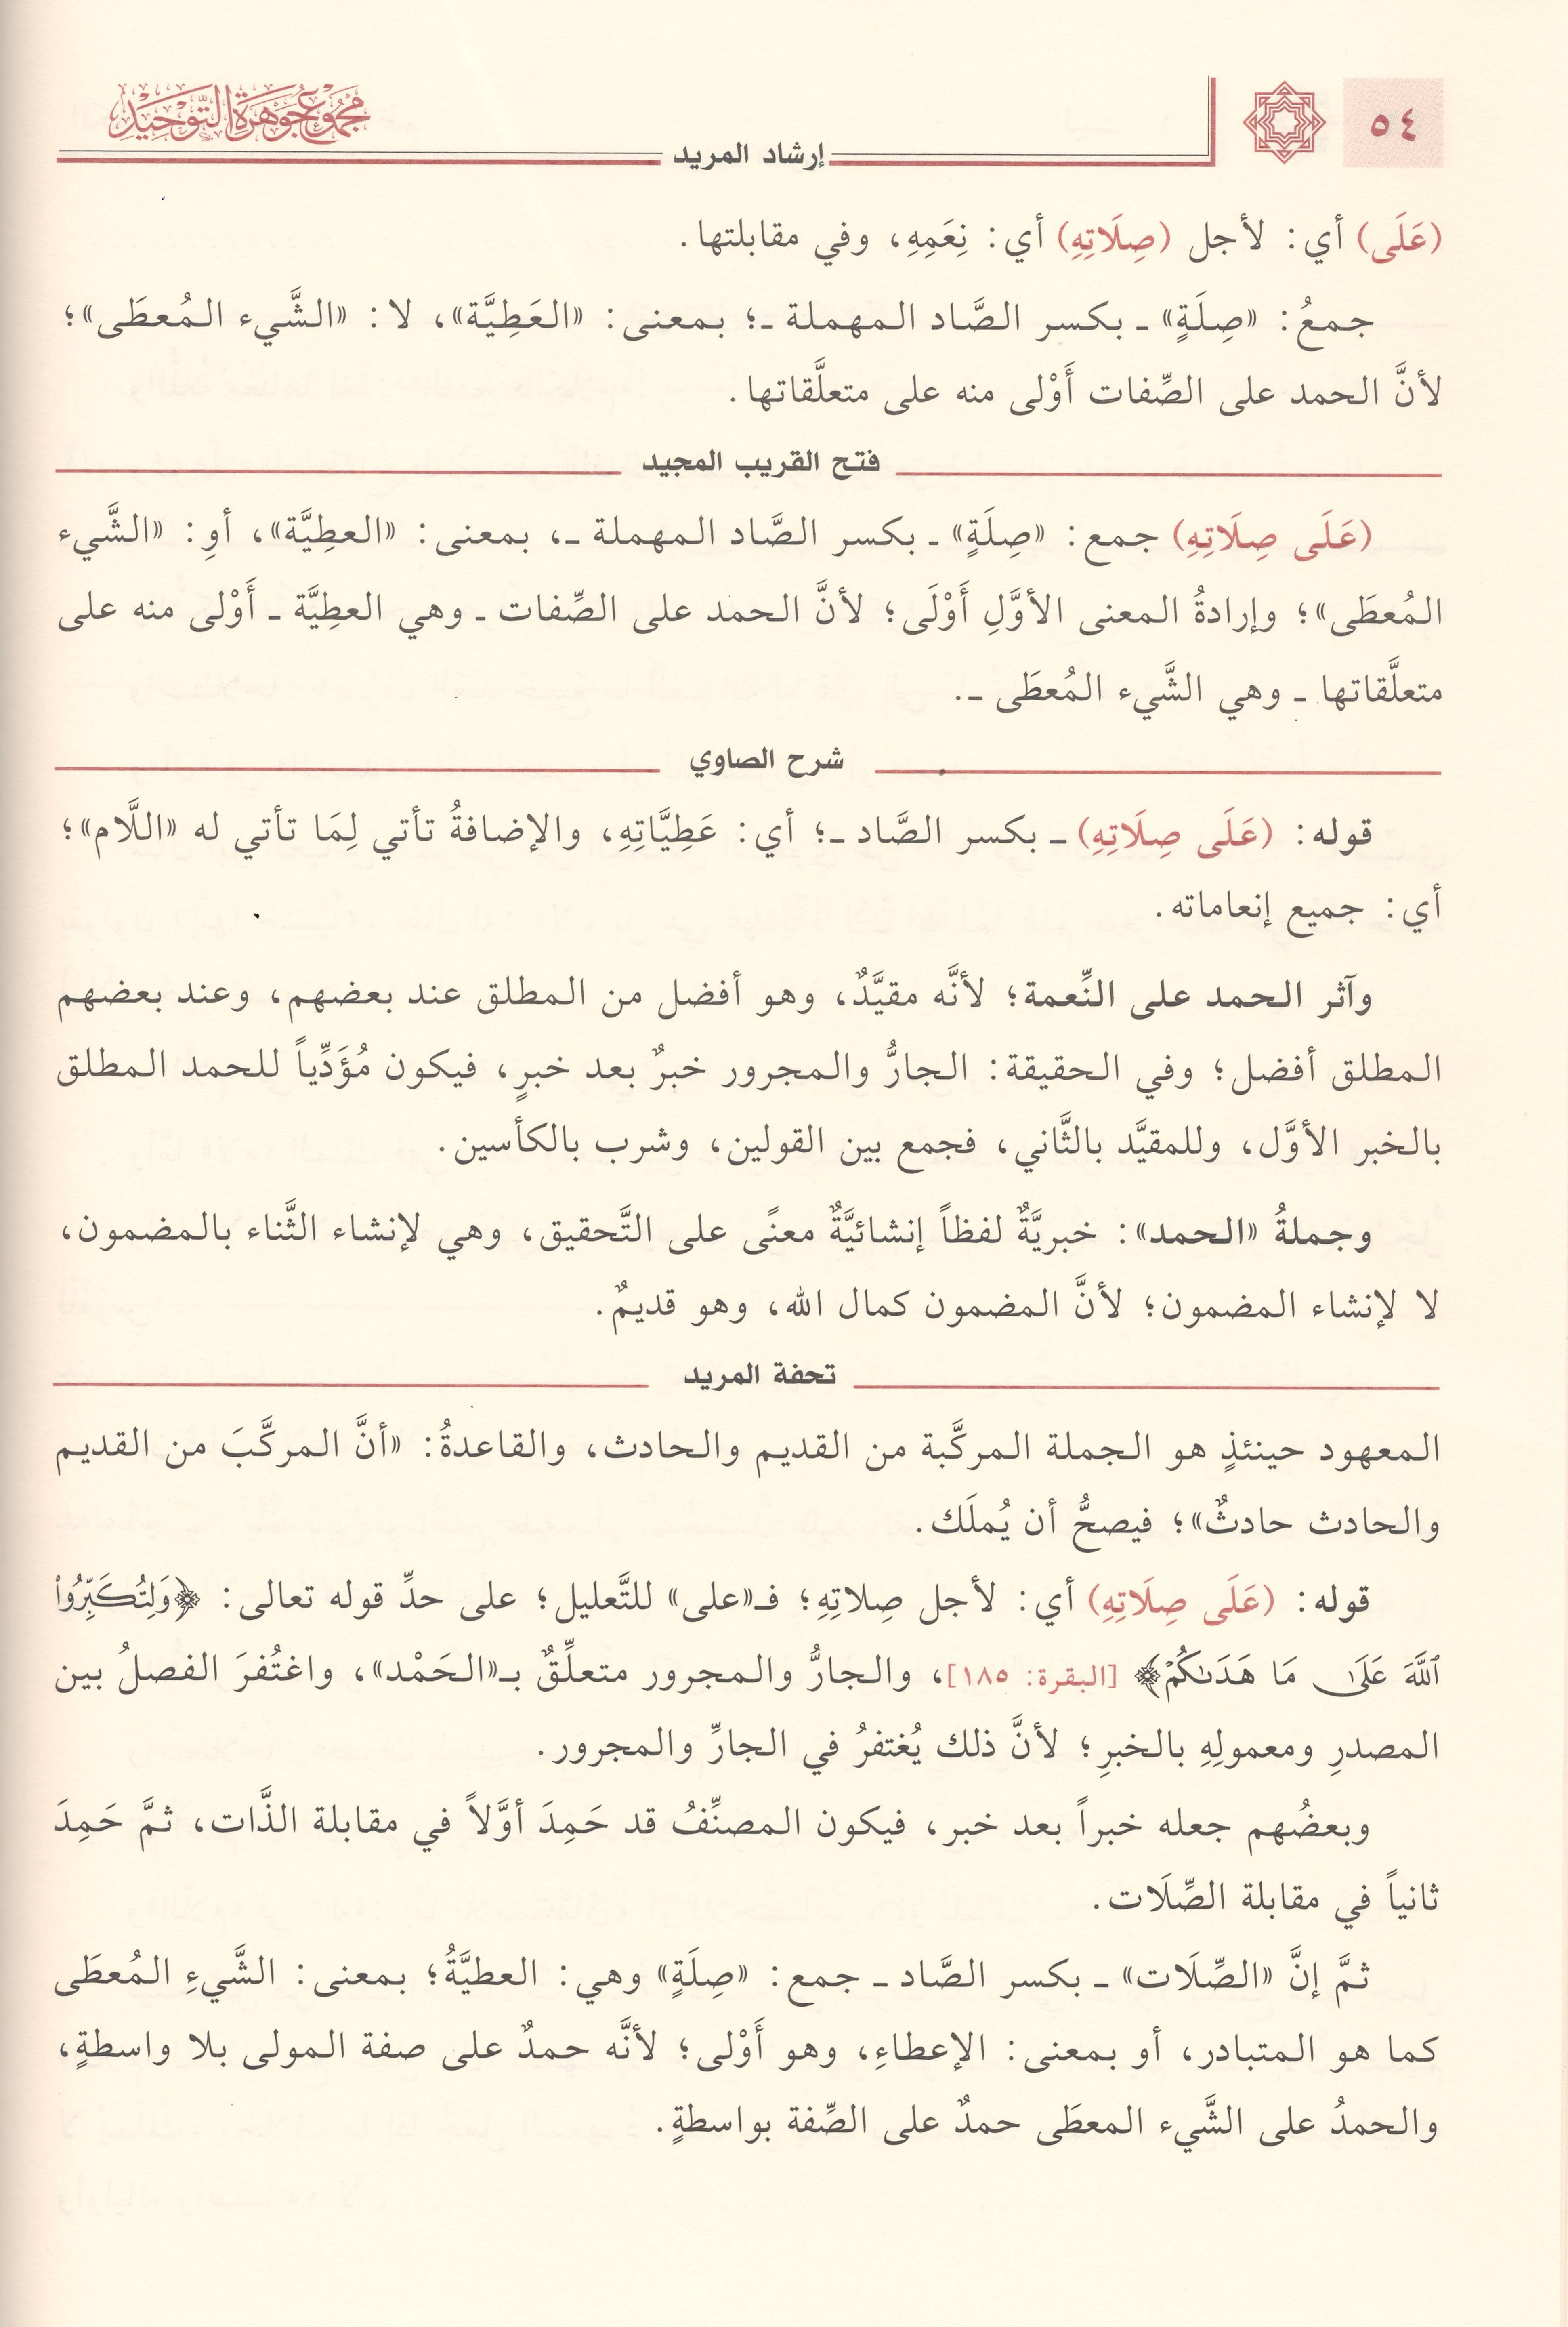 ٥٤
مجموع جوهرة التوحيد
إرشاد المريد
(عَلَى) أي: لأجل (صِلَاتِهِ) أي: نِعَمِهِ، وفي مقابلتها.
جمعُ: «صِلَةٍ» ـ بكسر الصَّاد المهملة ـ؛ بمعنى: «العَطِيَّة»، لا: «الشَّيء المُعطَى»؛
لأنَّ الحمد على الصِّفات أَوْلى منه على متعلَّقاتها.
فتح القريب المجيد
(عَلَى صِلَاتِهِ) جمع: «صِلَةٍ» ـ بكسر الصَّاد المهملة ـ، بمعنى: «العطِيَّة»، أوِ: «الشَّيء
المُعطَى»؛ وإرادةُ المعنى الأوَّلِ أَوْلَى؛ لأنَّ الحمد على الصِّفات ـ وهي العطِيَّة ـ أَوْلى منه على
متعلَّقاتها ـ وهي الشَّيء المُعطَى ـ.
شرح الصاوي
قوله: (عَلَى صِلَاتِهِ) ـ بكسر الصَّاد ـ؛ أي: عَطِيَّاتِهِ، والإضافةُ تأتي لِمَا تأتي له «اللَّام»؛
أي: جميع إنعاماته.
وآثر الحمد على النِّعمة؛ لأنَّه مقيَّدٌ، وهو أفضل من المطلق عند بعضهم، وعند بعضهم
المطلق أفضل؛ وفي الحقيقة: الجارُّ والمجرور خبرٌ بعد خبرٍ، فيكون مُؤَدِّياً للحمد المطلق
بالخبر الأوَّل، وللمقيَّد بالثَّاني، فجمع بين القولين، وشرب بالكأسين.
وجملةُ «الحمد»: خبريَّةٌ لفظاً إنشائيَّةٌ معنًى على التَّحقيق، وهي لإنشاء الثَّناء بالمضمون،
لا لإنشاء المضمون؛ لأنَّ المضمون كمال الله، وهو قديمٌ.
تحفة المريد
المعهود حينئذٍ هو الجملة المركَّبة من القديم والحادث، والقاعدةُ: «أنَّ المركَّبَ من القديم
والحادث حادثٌ»؛ فيصحُّ أن يُملَك.
قوله: (عَلَى صِلَاتِهِ) أي: لأجل صِلاتِهِ؛ فـ«على» للتَّعليل؛ على حدِّ قوله تعالى: ﴿وَلِتُكَبِّرُوا۟
ٱللَّهَ عَلَىٰ مَا هَدَىٰكُمْ﴾ [البقرة: ١٨٥]، والجارُّ والمجرور متعلِّقٌ بـ«الحَمْد»، واغتُفرَ الفصلُ بين
المصدرِ ومعمولِهِ بالخبرِ؛ لأنَّ ذلك يُغتفرُ في الجارِّ والمجرور.
وبعضُهم جعله خبراً بعد خبر، فيكون المصنِّفُ قد حَمِدَ أوَّلاً في مقابلة الذَّات، ثمَّ حَمِدَ
ثانياً في مقابلة الصِّلَات.
ثمَّ إنَّ «الصِّلَات» ـ بكسر الصَّاد ـ جمع: «صِلَةٍ» وهي: العطيَّةُ؛ بمعنى: الشَّيءِ المُعطَى
كما هو المتبادر، أو بمعنى: الإعطاءِ، وهو أَوْلى؛ لأنَّه حمدٌ على صفة المولى بلا واسطةٍ،
والحمدُ على الشَّيء المعطَى حمدٌ على الصِّفة بواسطةٍ.